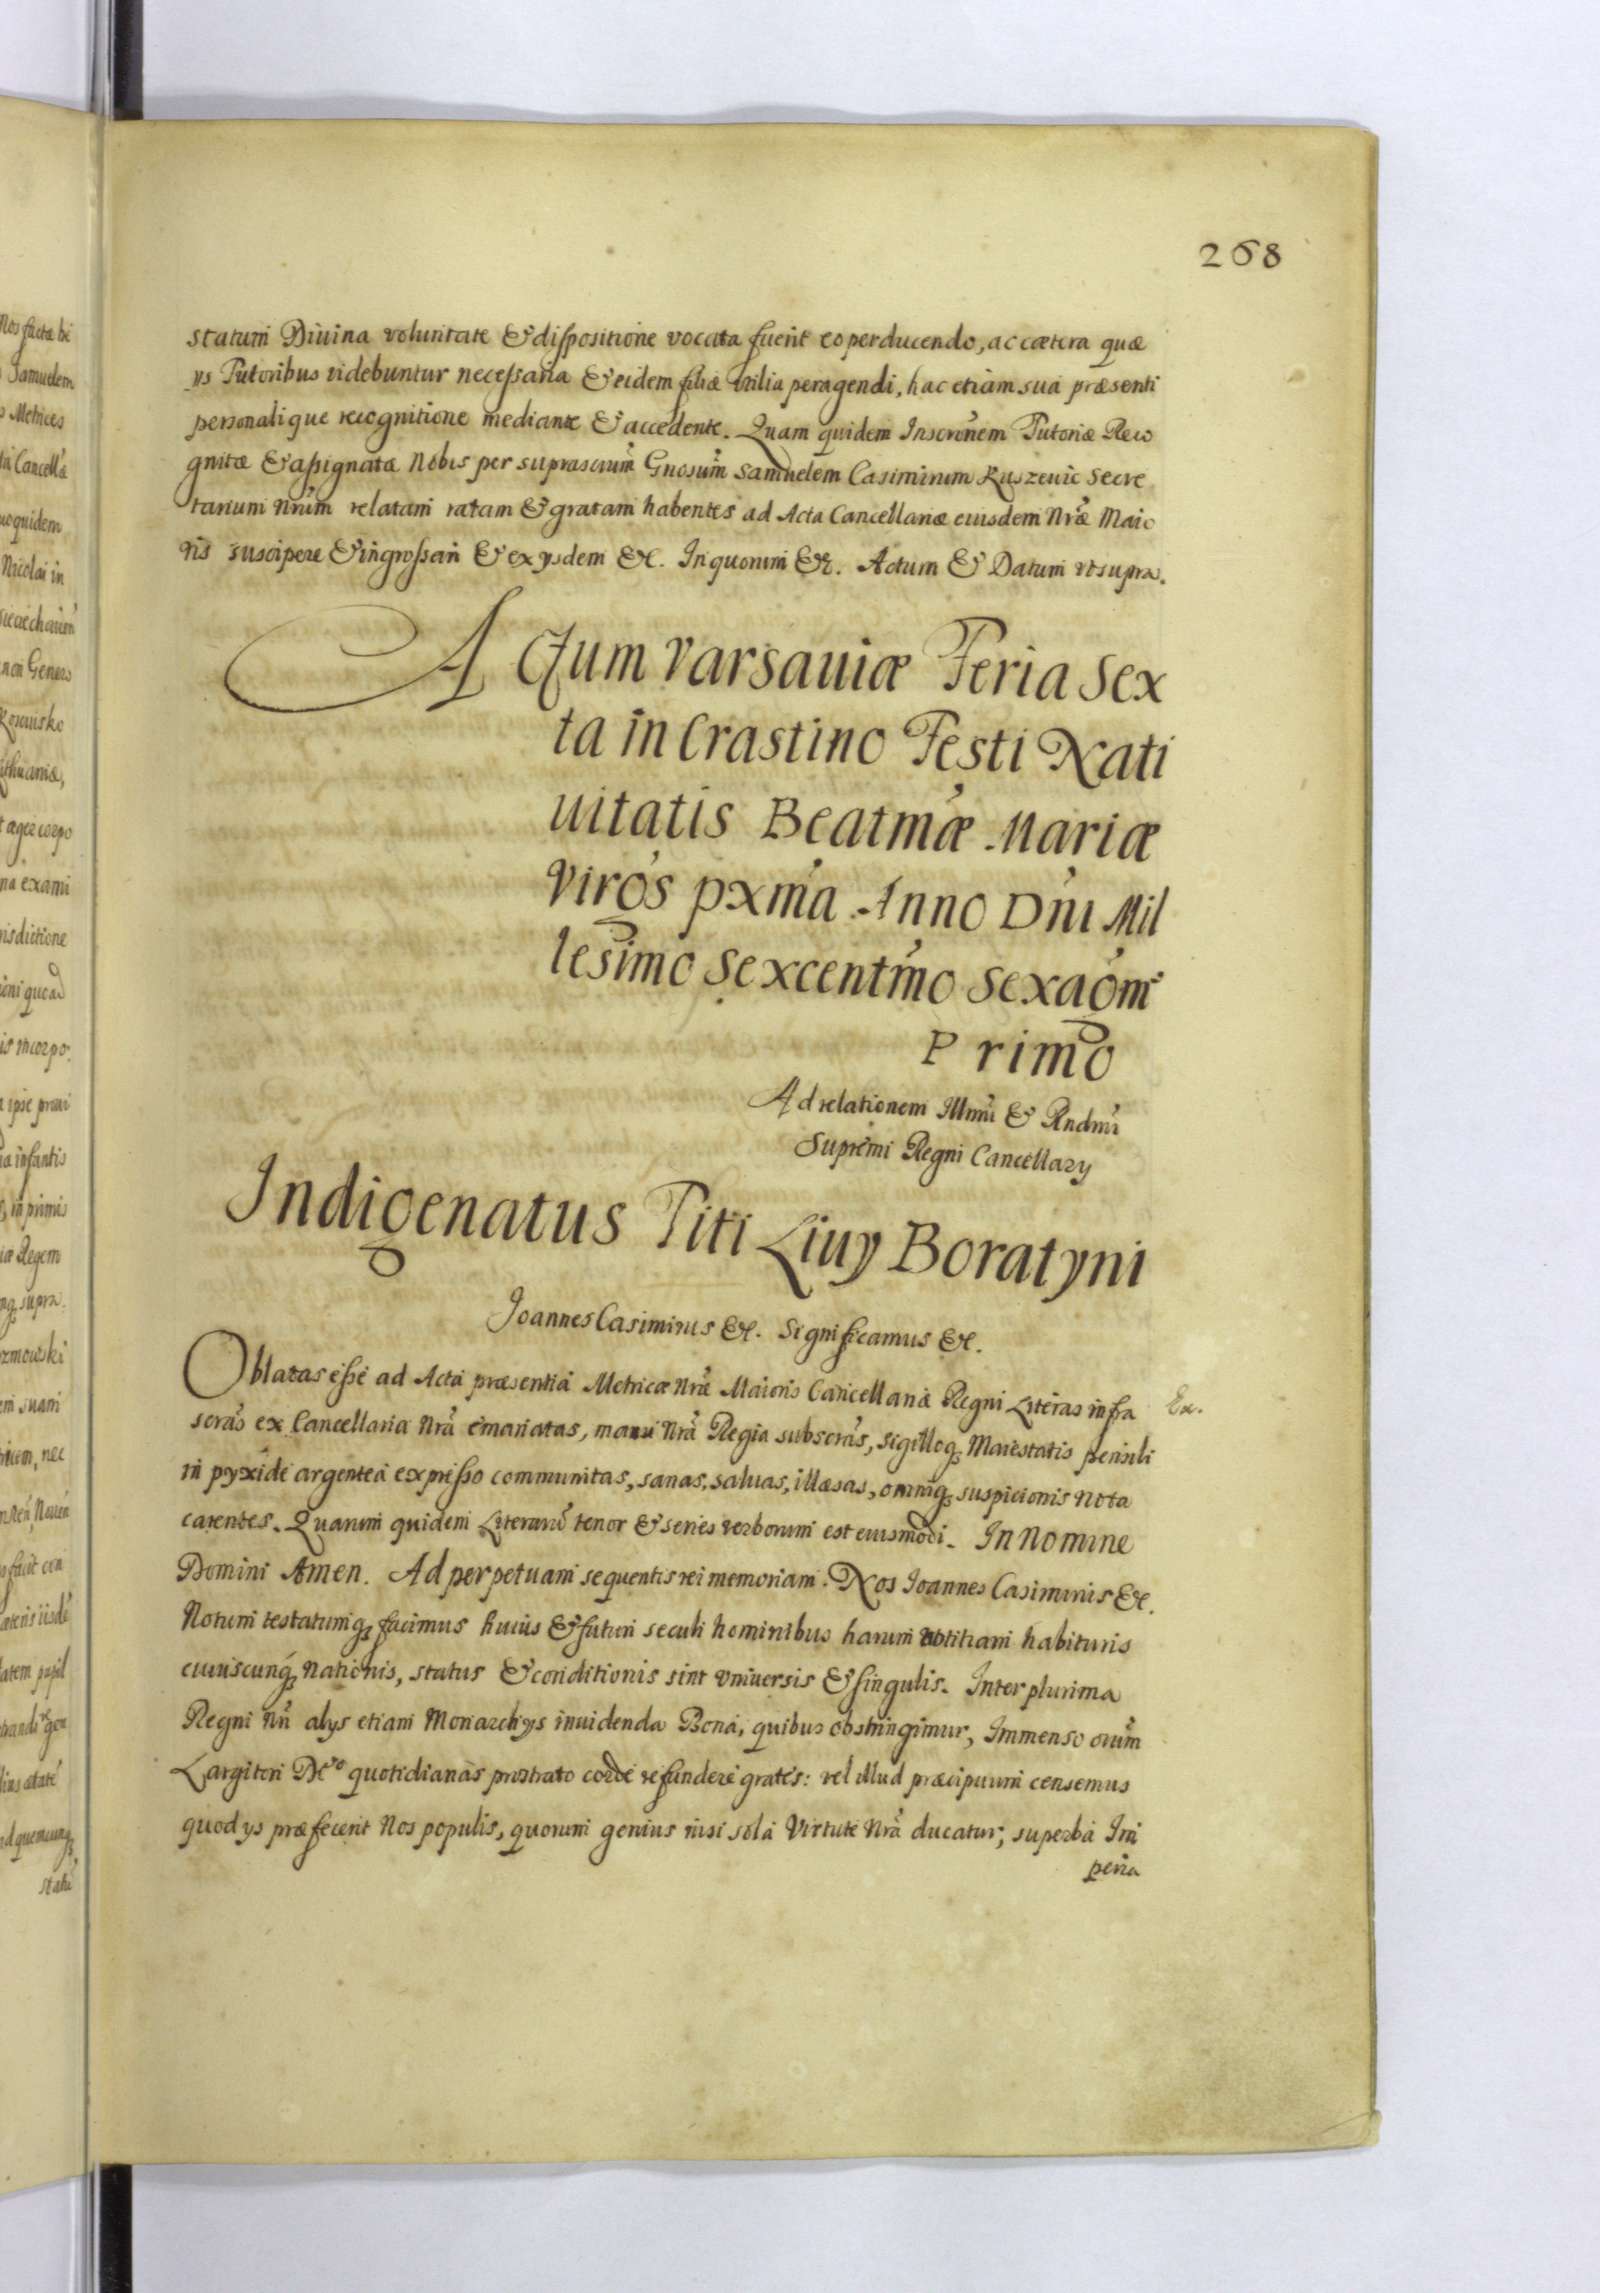 268
statum Diuina voluntate & dispositione vocata fuerit eo perducendo, ac cætera quæ
ys Tutoribus videbuntur necessaria & eidem filiæ vtilia peragendi, hac etiam sua præsenti
personalique recognitione mediante & accedente. Quam quidem Inscronem Tutoriæ Reco
gnitæ & assignatæ Nobis per suprascrium Gnosum Samuelem Casimirum Kuszewic Secre
tarium Nrum relatam ratam & gratam habentes ad Acta Cancellariæ eiusdem Nræ Maio
ris suscipere & ingrossari & ex ysdem &c. In quorum &c. Actum & Datum vt supra.
ACtum Varsauiæ Feria Sex
ta in Crastino Festi Nati
uitatis Beatmæ Mariæ
Virgs pxma Anno Dni Mil
lesimo Sexcentmo Sexagm
Primo
Ad relationem Illmi & Rndmi
Supremi Regni Cancellary
Indigenatus Titi Liuy Boratyni
Joannes Casimirus &c. Significamus &c.
Oblatas esse ad Acta præsentia Metricæ Nræ Maioris Cancellariæ Regni Literas infra
Ex.
scras ex Cancellaria Nra emanatas, manu Nra Regia subscras, sigilloq; Maiestatis pensili
in pyxide argentea expresso communitas, sanas, saluas, illæsas, omniq; suspicionis nota
carentes. Quarum quidem Literaru tenor & series verborum est euismodi. In Nomine
Domini Amen. Ad perpetuam sequentis rei memoriam. Nos Joannes Casimirus &c.
Notum testatumq; facimus huius & futuri seculi hominibus harum notitiam habituris
cuiuscunq; nationis, status & conditionis sint vniuersis & singulis. Inter plurima
Regni Nri alys etiam Monarchys inuidenda Bona, quibus obstringimur, Immenso oium
Largitori Deo quotidianas prostrato corde refundere grates: vel illud præcipuum censemus
quod ys præfecerit Nos populis, quorum genius nisi sola Virtute Nra ducatur, superba Im
peria